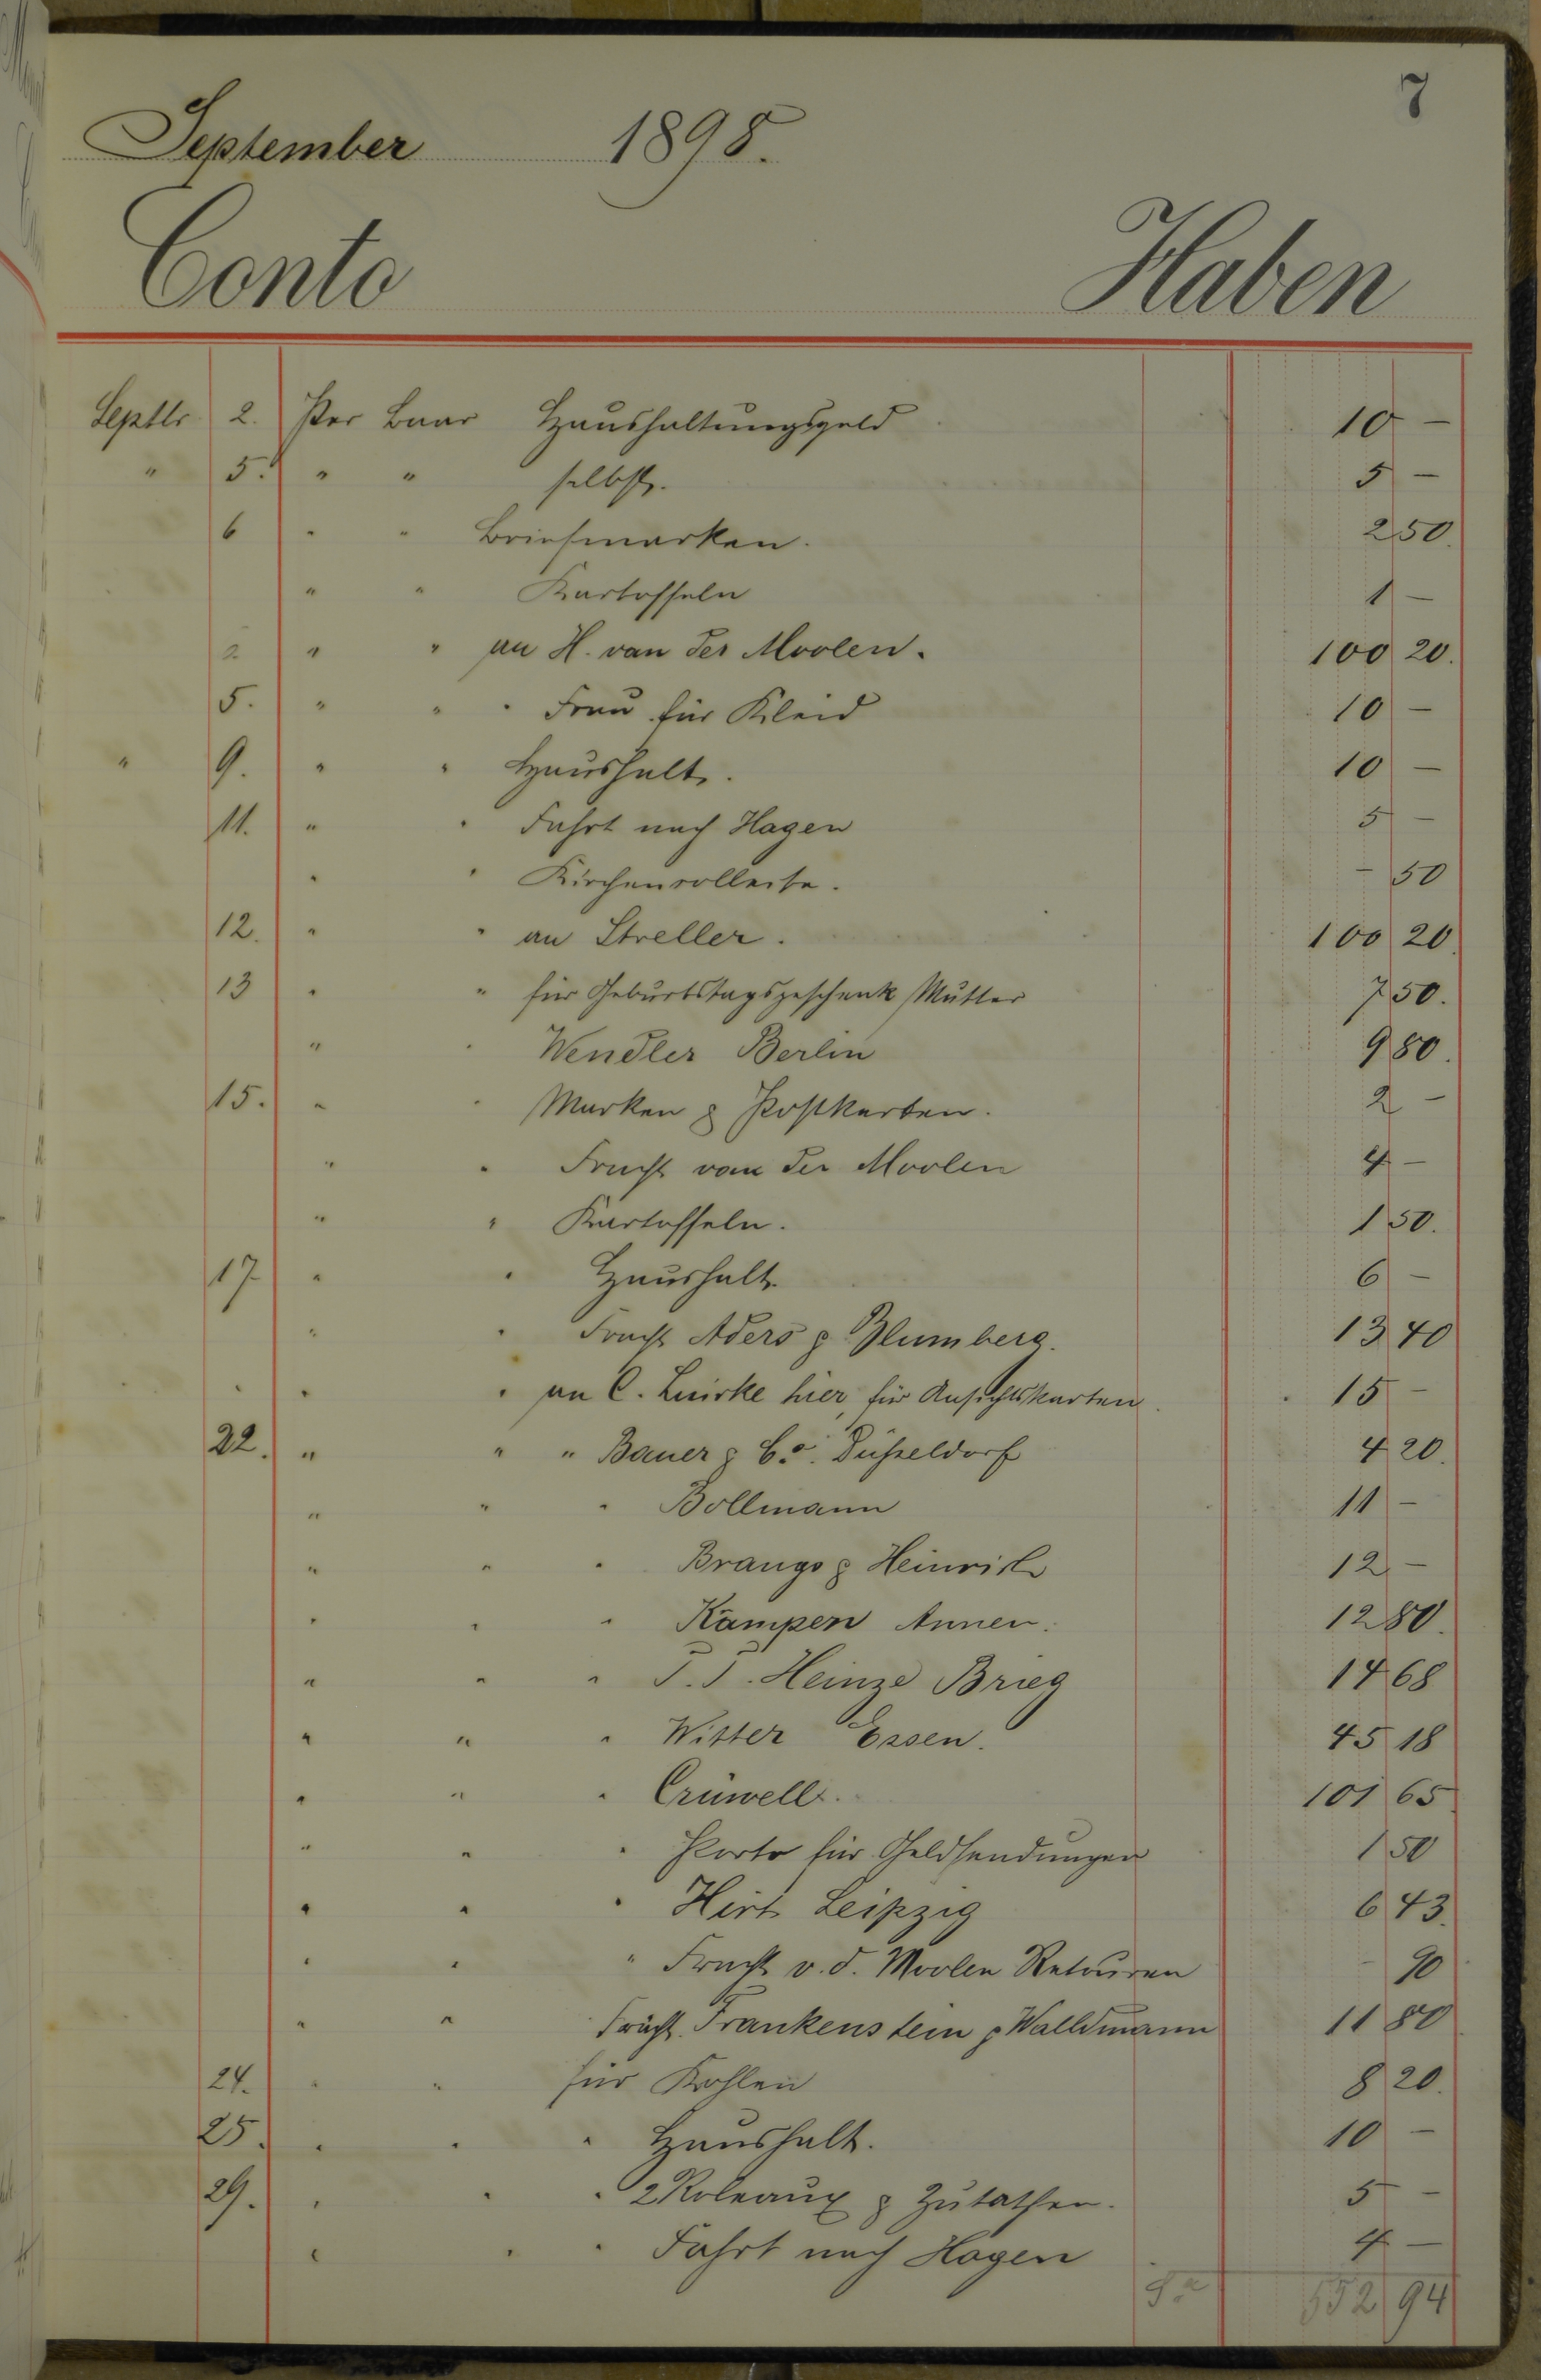 7
September 1898.
Conto Haben
Septbr 2. Per Baar Haushaltungsgeld 10 —
" 5. " " selbst. 5 —
6 " " Briefmarken. 2 50.
" " Kartoffeln 1 —
2. " " an H. van der Moolen. 100 20.
5. " " " Frau für Kleid 10 —
" 9. " " Haushalt. 10 —
11. " " Fahrt nach Hagen 5 —
" " Kirchencollecte. — 50
12. " " an Streller. 100 20
13 " " für Geburtstagsgeschenk Mutter 7 50.
" " Wendler Berlin 9 80.
15. " " Marken & Postkarten. 2 —
" " Fracht van der Moolen 4 —
" " Kartoffeln. 1 50.
17. " " Haushalt 6 —
" " Fracht Aders & Blumberg. 13 40
" " " an C. hier, für Ansichtskarten. 15 —
22. " " " Bauer & Co. Düsseldorf 4 20.
" " " Bollmann 11 —
" " " Brangs & Heinrich 12 —
" " " Kampen Annen. 12 80.
" " " Heinze Brieg 14 68
" " " Witter Essen. 45 18
" " " Crüwell. 101 65
" " " Porto für Geldsendungen 1 50
" " " Hirt Leipzig 6 43.
" " " Fracht v. d. Moolen Retouren — 90
" " Fracht. Frankenstein & Walldmann 11 80
24. " " für Kohlen 8 20.
25. " " " Haushalt. 10 —
29. " " " 2 Roleaux & Zutathen. 5 —
" " " Fahrt nach Hagen 4 —
Sa 552 94